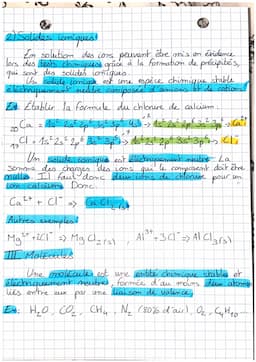 2) Solides ioniques
En solution des ions peuvent être mis en évidence
lors des tests chimiques grâce à la formation de précipités,
qui sont des solides ioniques.
Un solide ionique est une espèce chimique stable
électriquement neutre composée d'anions et de cations
Ex: Établir la formule du chlorure de calcium.
20 Ca = 1s² 2s² 2p⁶ 3s² 3p⁶ 4s²
Cl = 1s² 2s² 2p⁶ 3s² 3p⁵
Un solide ionique est électriquement neutre. La
somme des charges des ions qui le composent doit être
nulle. Il faut donc deux ions de chlorure pour un
ion calcium. Donc:
Ca²⁺ + Cl⁻ ⇒ Ca Cl₂ (s)
Autres exemples:
Mg²⁺ + 2Cl⁻ ⇒ Mg Cl₂ (s) , Al³⁺ + 3 Cl⁻ ⇒ Al Cl₃ (s)
III Molécules
Une molécule est une entité chimique stable et
électriquement neutre, formée d'au moins deux atomes
liés entre eux par une liaison de valence.
Ex: H₂O, CO₂, CH₄, N₂ (80% d'air), O₂, C₄H₁₀ ...